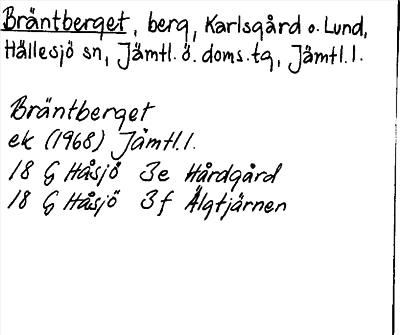 Bräntberget, berg, Karlsgård o. Lund,
Hällesjö sn, Jämtl. ö. doms. tg, Jämtl. l.
Bräntberget
ek (1968) Jämtl. l.
18 G Håsjö 3e Hårdgård
18 G Håsjö 3f Älgtjärnen